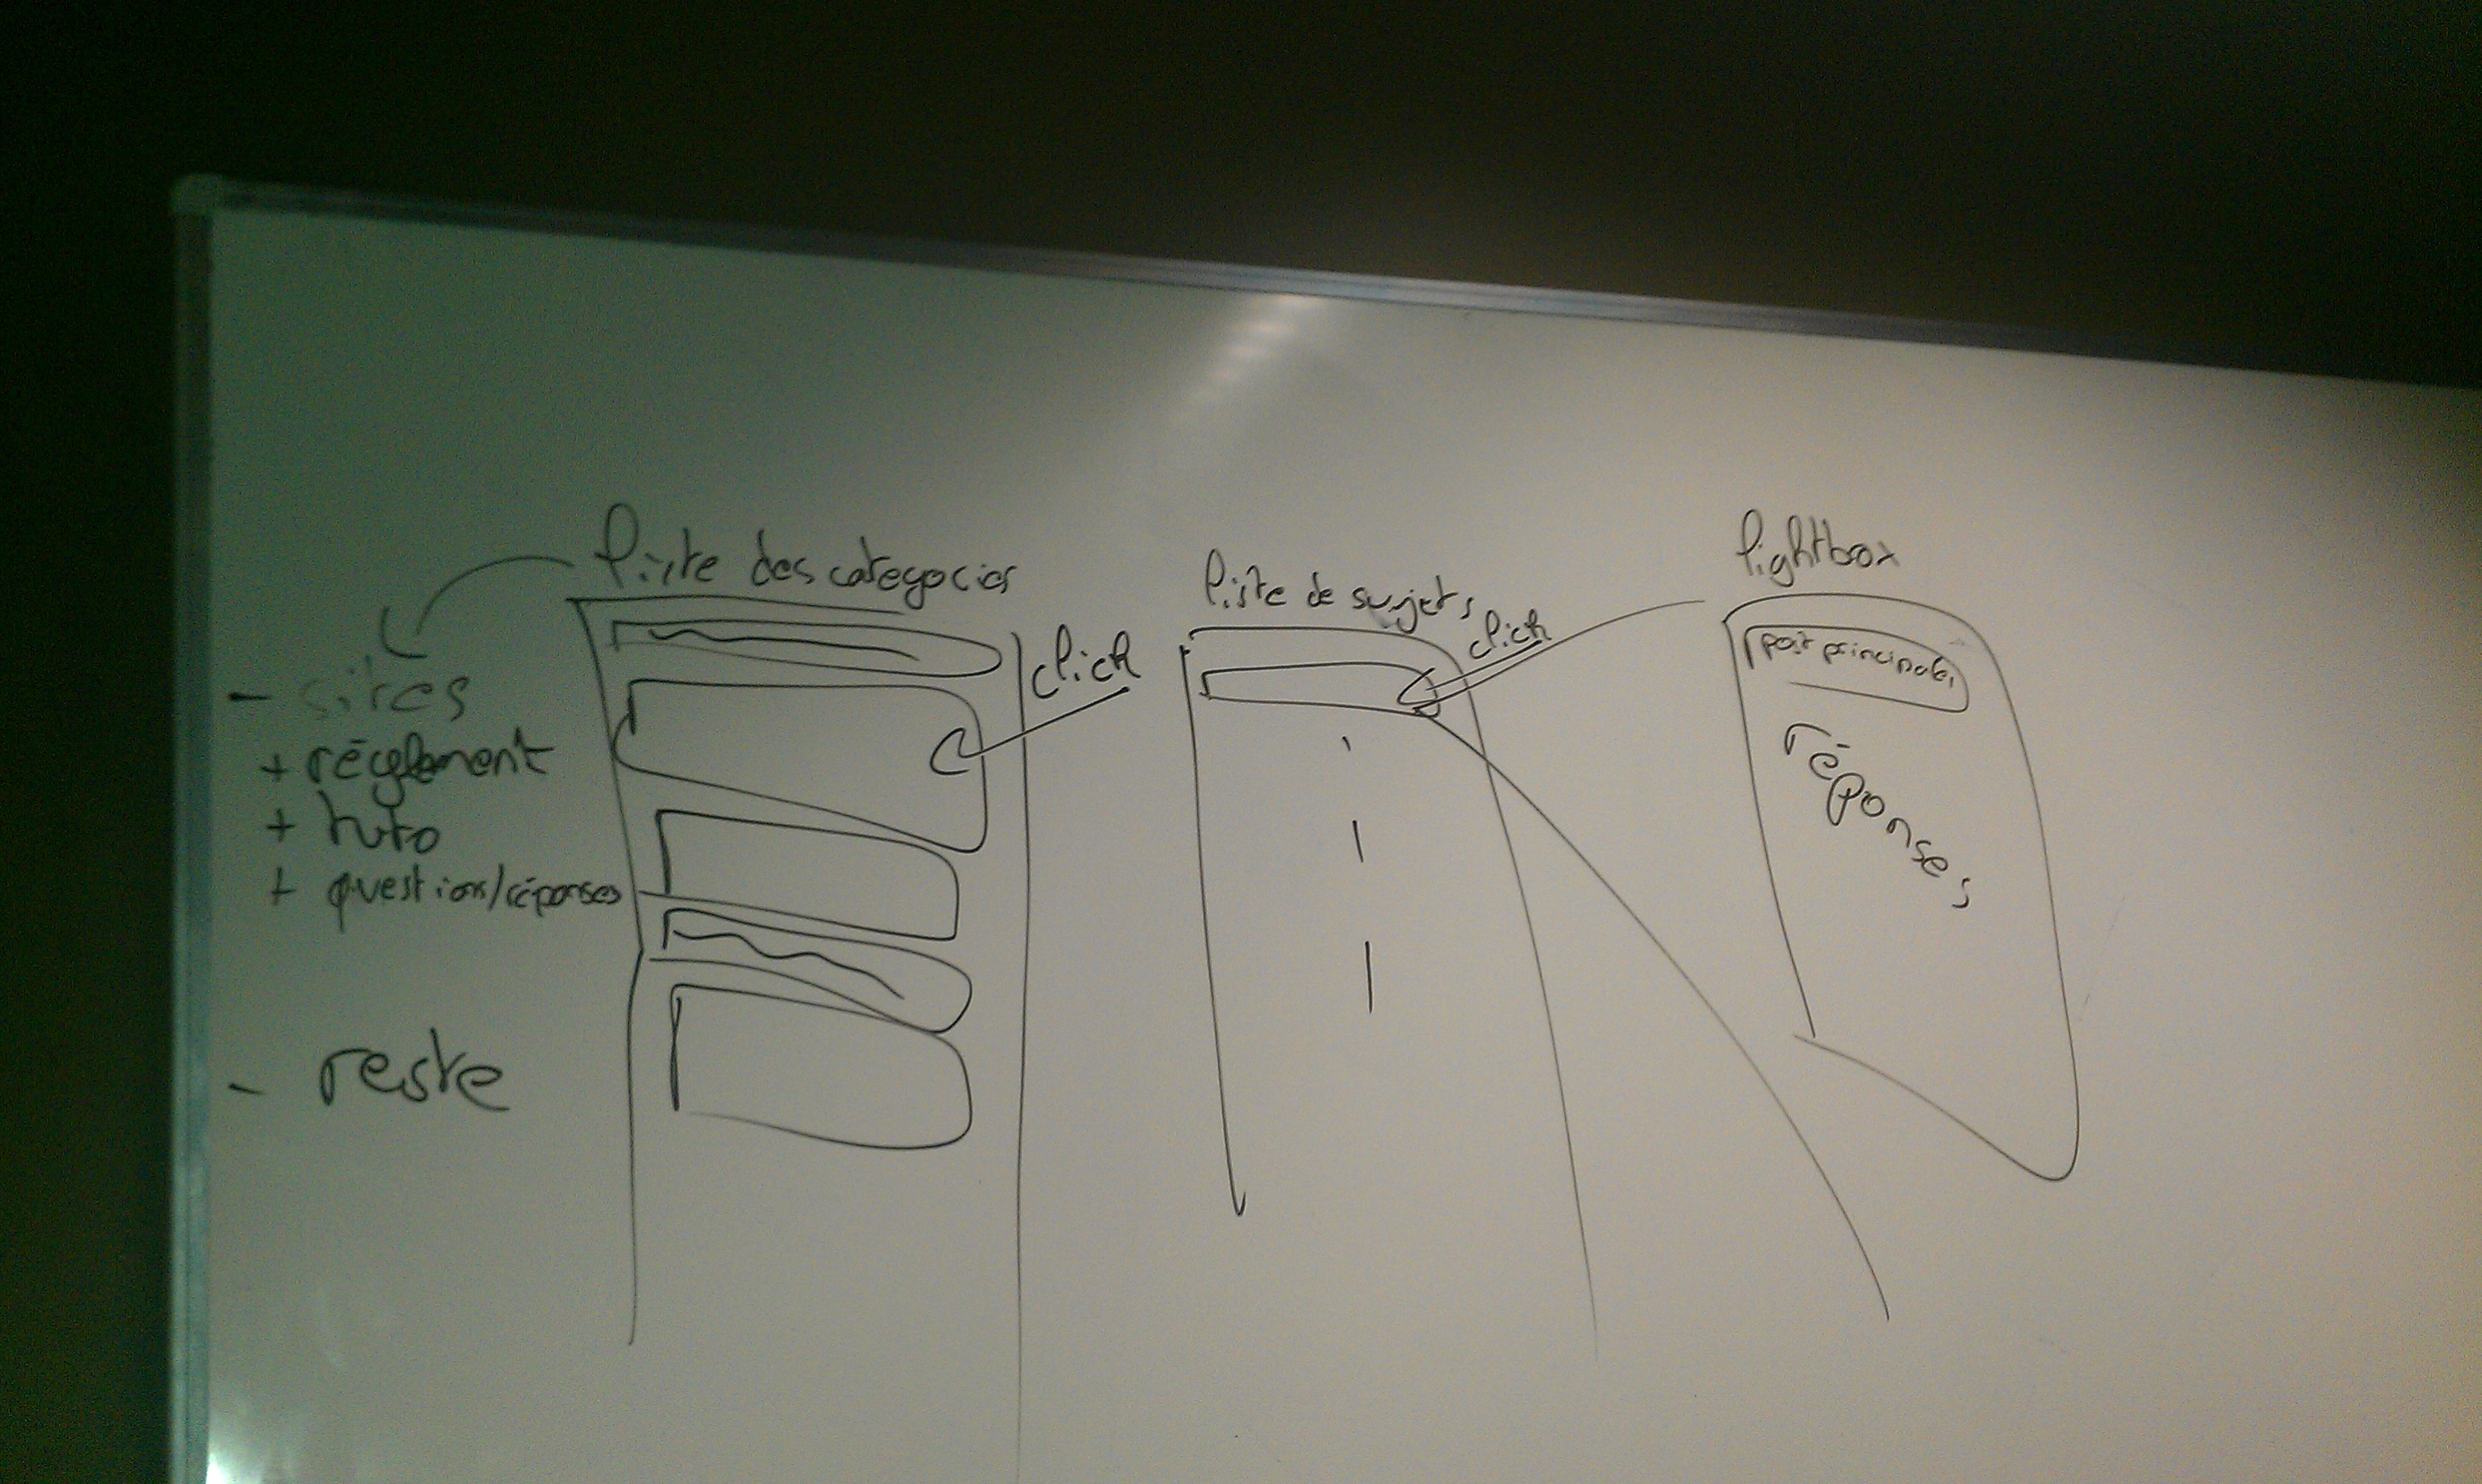 liste des categories
- sites
+ réglement
+ tuto
+ questions/réponses
- reste
click
liste de sujets
click
lightbox
post principale
réponses